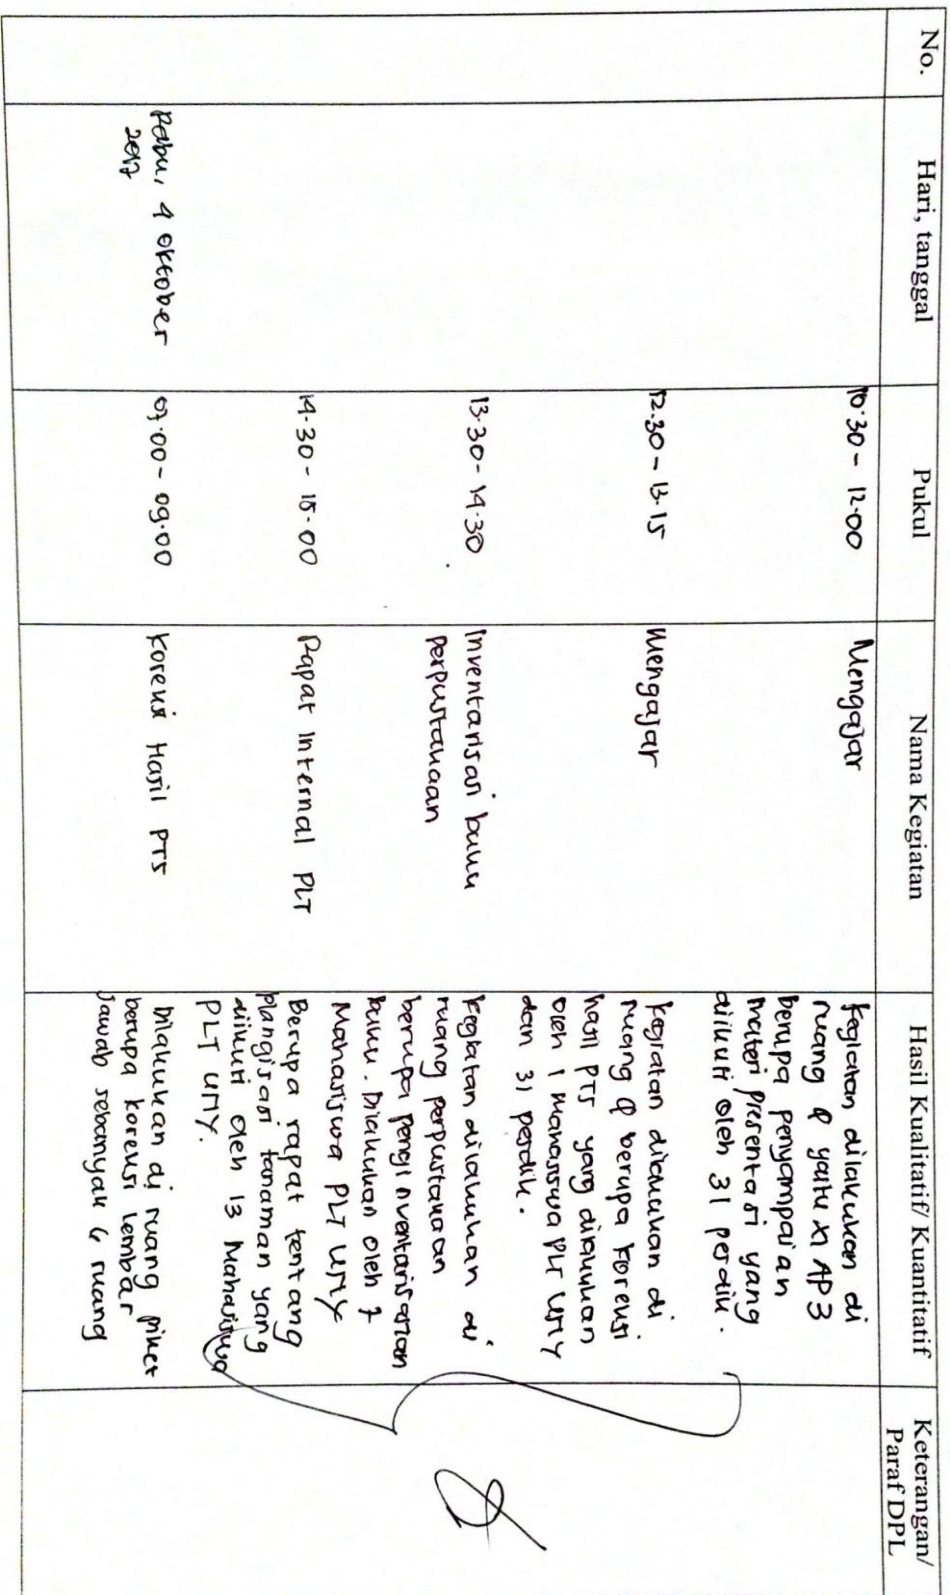 No.
Hari, tanggal
Pukul
Nama Kegiatan
Hasil Kualitatif/ Kuantitatif
Keterangan/
Paraf DPL
10.30 - 12.00
Mengajar
Kegiatan dilakukan di
ruang 9 yaitu XI AP3
berupa penyampaian
materi presentasi yang
diikuti oleh 31 perdik.
12.30 - 13.15
Mengajar
Kegiatan dilakukan di
ruang 9 berupa koreksi
hasil PTS yang dilakukan
oleh 1 mahasiswa PLT UNY
dan 31 perdik.
13.30 - 14.30
Inventarisasi buku
perpustakaan
Kegiatan dilakukan di
ruang perpustakaan
berupa penginventarisasian
buku. Dilakukan oleh 7
Mahasiswa PLT UNY
14.30 - 15.00
Rapat Internal PLT
Berupa rapat tentang
plangisasi tanaman yang
diikuti oleh 13 Mahasiswa
PLT UNY.
Rabu, 4 Oktober
2017
07.00 - 09.00
Koreksi Hasil PTS
Dilakukan di ruang piket
berupa koreksi lembar
jawab sebanyak 6 ruang